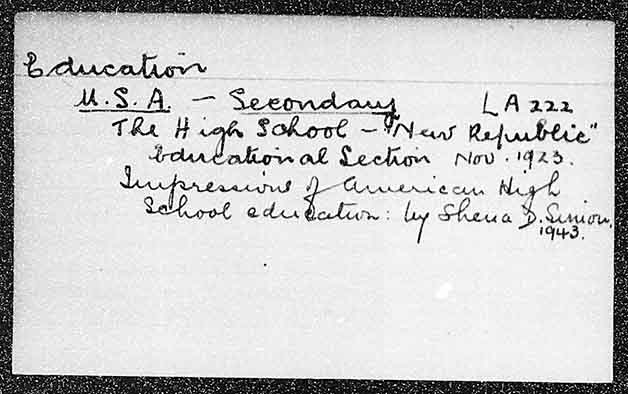 Education
U.S.A. - Secondary LA 222
The High School - "New Republic"
Educational Section Nov. 1923.
Impressions of American High
School education: by Shena D. Simon.
1943.